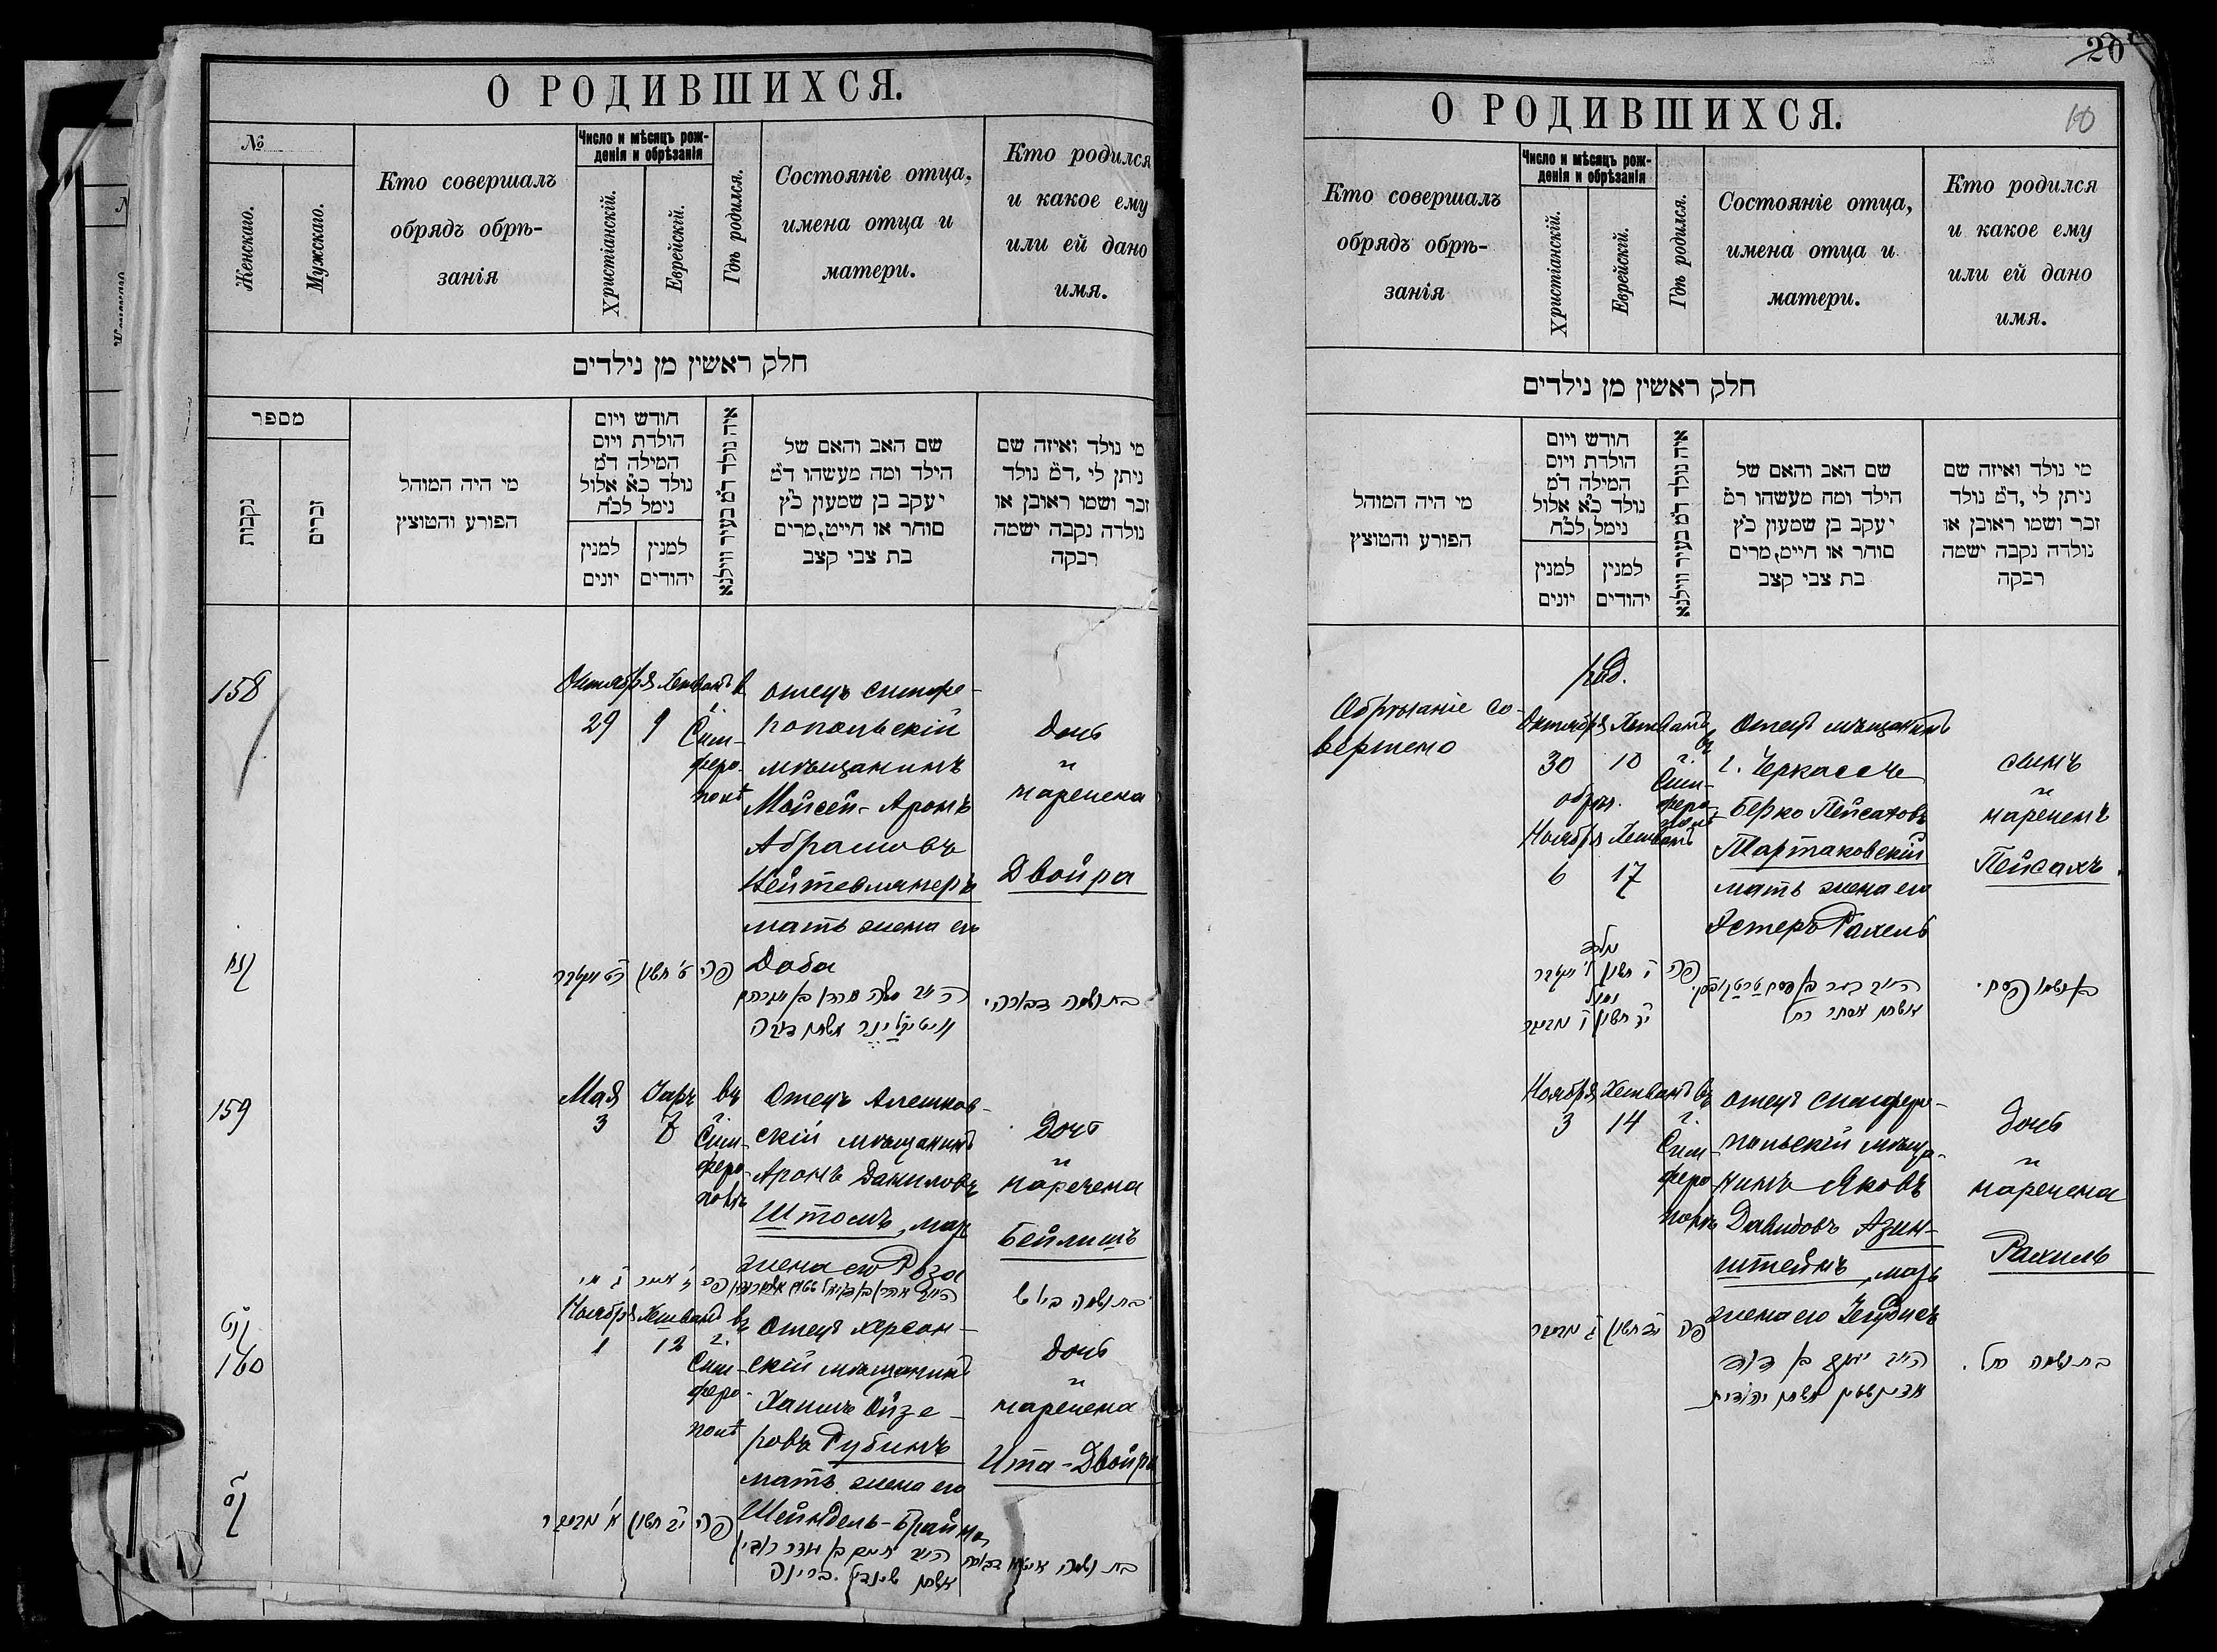 О РОДИВШИХСЯ.
№
Женскаго.
Мужскаго.
Кто совершалъ
обрядъ обрѣ-
занія
Число и мѣсяцъ рож-
денія и обрѣзанія
Христіанскій.
Еврейскій.
Гдѣ родился.
Состояніе отца,
имена отца и
матери.
Кто родился
и какое ему
или ей дано
имя.
חלק ראשון מן נילדים
מספר
נקבות
זכרים
מי היה המוהל
הפורע והמוצץ
חודש ויום
הולדת ויום
המילה ד״מ
נולד כ״א אלול
נימל לכ״ח
למנין
יונים
למנין
יהודים
איה נולד ד״מ בעיר ווילנא
שם האב והאם של
הילד ומה מעשהו ד״מ
יעקב בן שמעון כ״ץ
סוחר או חייט, מרים
בת צבי קצב
מי נולד ואיזה שם
ניתן לי, ד״מ נולד
זכר ושמו ראובן או
נולדה נקבה ישמה
רבקה
158
Октября Хешванъ в
29 9
г. Сим-
феро-
полѣ
отецъ симфе-
ропольскій
мѣщанинъ
Мойсей-Аронъ
Абрамовъ
мать жена его
Доба
Дочь
и
наречена
Двойра
קנח
כ״ט אקטבר
ט׳ חשון
פה
בת ושמה דבורה.
159
Мая Іаръ въ
3 7
г. Сим-
феро-
полѣ
Отецъ Алешков-
скій мѣщанинъ
Аронъ Даниловъ
Штомъ, мать
жена его Роза
Дочь
и
наречена
Бейлишъ
קנט
160
Ноября Хешванъ въ
1 12
г. Сим-
феро-
полѣ
Отецъ херсон-
скій мѣщанинъ
Хаимъ Ойзе-
ровъ Рубинъ
мать жена его
Шейндель-Брайна
Дочь
и
наречена
Ита-Двойра
קס
פה
י״ב חשון
אשתו שינדיל בריינה
20
10
О РОДИВШИХСЯ.
Кто совершалъ
обрядъ обрѣ-
занія
Число и мѣсяцъ рож-
денія и обрѣзанія
Христіанскій.
Еврейскій.
Гдѣ родился.
Состояніе отца,
имена отца и
матери.
Кто родился
и какое ему
или ей дано
имя.
חלק ראשון מן נילדים
מי היה המוהל
הפורע והמוצץ
חודש ויום
הולדת ויום
המילה ד״מ
נולד כ״א אלול
נימל לכ״ח
למנין
יונים
למנין
יהודים
איה נולד ד״מ בעיר ווילנא
שם האב והאם של
הילד ומה מעשהו ד״מ
יעקב בן שמעון כ״ץ
סוחר או חייט, מרים
בת צבי קצב
מי נולד ואיזה שם
ניתן לי, ד״מ נולד
זכר ושמו ראובן או
נולדה נקבה ישמה
רבקה
Обрѣзаніе со-
вершено
род.
Октября Хешванъ въ
30 10
обрѣз.
Ноября Хешванъ
6 17
г. Сим-
феро-
полѣ
Отецъ мѣщанинъ
г. Черкассъ
Берко Пейсаховъ
Тартаковскій
мать жена его
Эстеръ Рахель
сынъ
и
нареченъ
Пейсахъ.
נולד
נימול
פה
אשתו אסתר רחל
בן ושמו פסח.
Ноября Хешванъ въ
3 14
г. Сим-
феро-
полѣ
отецъ симферо-
польскій мѣща-
нинъ Яковъ
Давидовъ Азин-
штейнъ, мать
жена его Іегудисъ
Дочь
и
наречена
Рахиль
פה
י״ד חשון
אשתו יהודית
בת ושמה רחל.